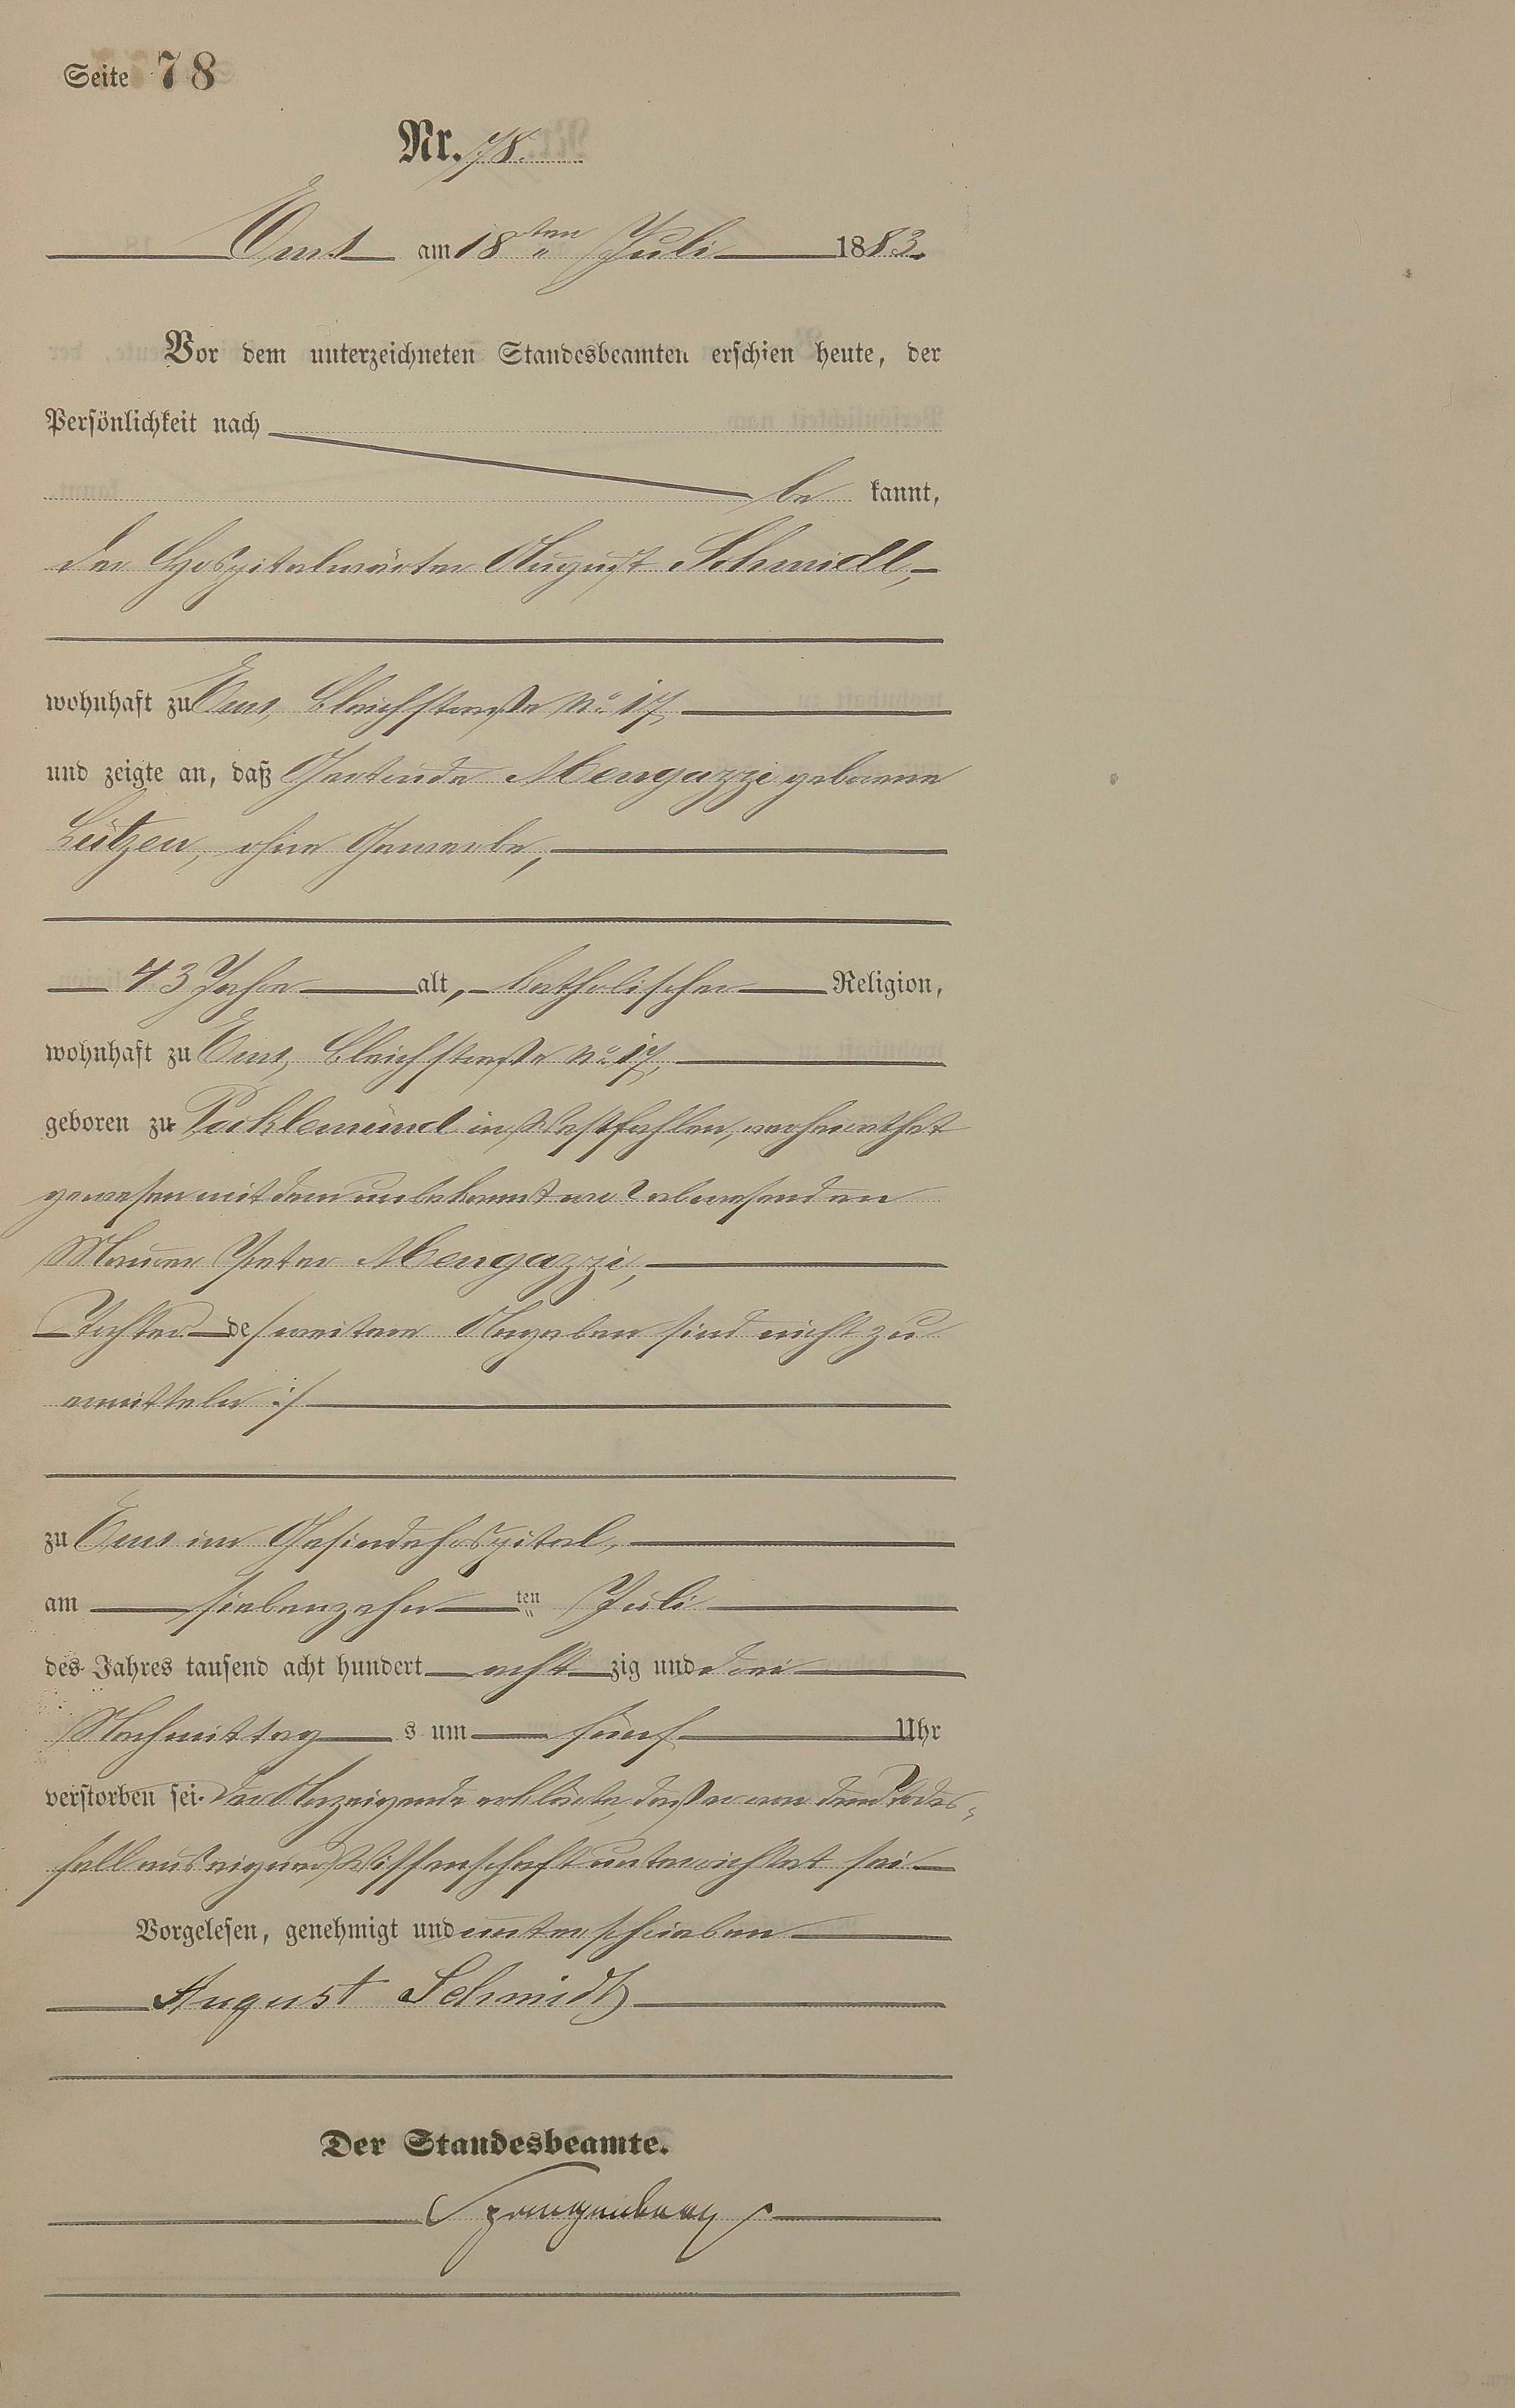 Seite 78
Nr. 78.
Ems am 18ten Juli 1883.
Vor dem unterzeichneten Standesbeamten erschien heute, der
Persönlichkeit nach
be kannt,
der Hospitalwärter August Schmidt,
wohnhaft zu Ems, Bleichstraße No. 17,
und zeigte an, daß Gertrude Mengazzi geborene
Lützen, ohne Gewerbe,
43 Jahre alt, katholischer Religion,
wohnhaft zu Ems, Bleichstraße No. 17,
geboren zu in Westfahlen, verheirathet
gewesen mit dem unbekannt wo? abwesenden
Maurer Peter Mengazzi,
Tochter de weitere Angaben sind nicht zu
ermitteln :/
zu Ems im Gesindehospital,
am siebenzehn ten Juli
des Jahres tausend acht hundert acht zig und drei
Nachmittag s um fünf Uhr
verstorben sei. Der Anzeigende erklärte, daß er von dem Todes-
fall aus eigener Wissenschaft unterrichtet sei.
Vorgelesen, genehmigt und unterschrieben
August Schmidt
Der Standesbeamte.
Spangenberg